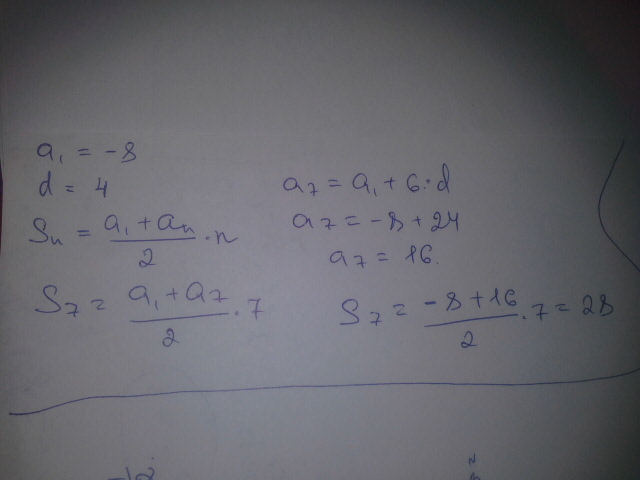 a₁ = -8
d = 4
Sₙ = (a₁ + aₙ)/2 · n
S₇ = (a₁ + a₇)/2 · 7
a₇ = a₁ + 6 · d
a₇ = -8 + 24
a₇ = 16.
S₇ = (-8 + 16)/2 · 7 = 28